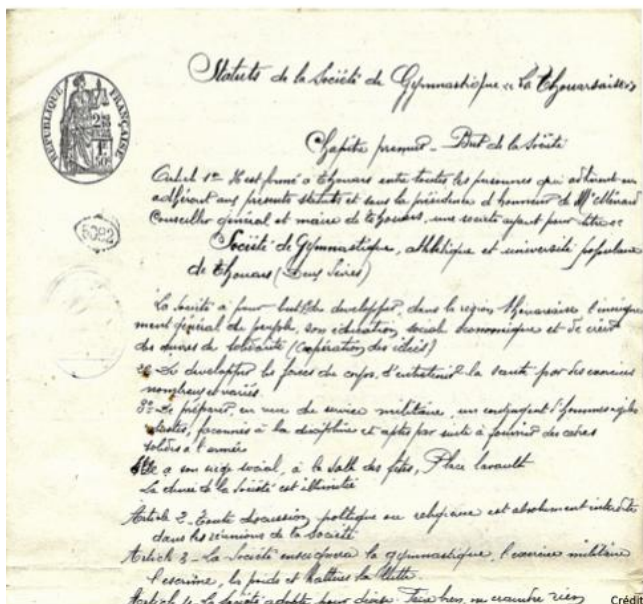 Statuts de la Société de Gymnastique "La Thouarsaise"
RÉPUBLIQUE FRANÇAISE
5082
Chapitre premier - But de la Société
Article 1er Il est formé à Thouars entre toutes les personnes qui
adhèrent aux présents statuts et sous la présidence d'honneur de Mr Ménard
Conseiller général et maire de Thouars, une société ayant pour titre
Société de Gymnastique, athlétique et université populaire
de Thouars (Deux Sèvres)
La Société a pour but de développer, dans la région Thouarsaise l'enseigne
ment général du peuple, son éducation sociale économique et de créer
des œuvres de solidarité (Coopération des idées)
2° De développer les forces du corps, d'entretenir la santé par des exercices
nombreux et variés
3° De préparer, en vue du service militaire, un contingent d'hommes agiles
façonnés à la discipline et aptes par suite à fournir des cadres
solides à l'armée
Elle a son siège social, à la Salle des fêtes, Place Lavault
La durée de la Société est illimitée
Article 2 - Toute discussion, politique ou religieuse est absolument interdite
dans les réunions de la Société
Article 3 - La Société enseignera la gymnastique, l'exercice militaire
l'escrime, la lutte
Article 4 - La Société adopte pour devise: Faire bien, ne craindre rien
Crédit